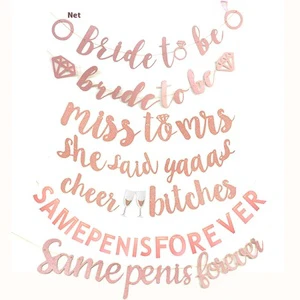 Net
Bride to be
bride to be
miss to mrs
she said yaaas
cheer bitches
SAMEPENISFOREVER
Same penis forever